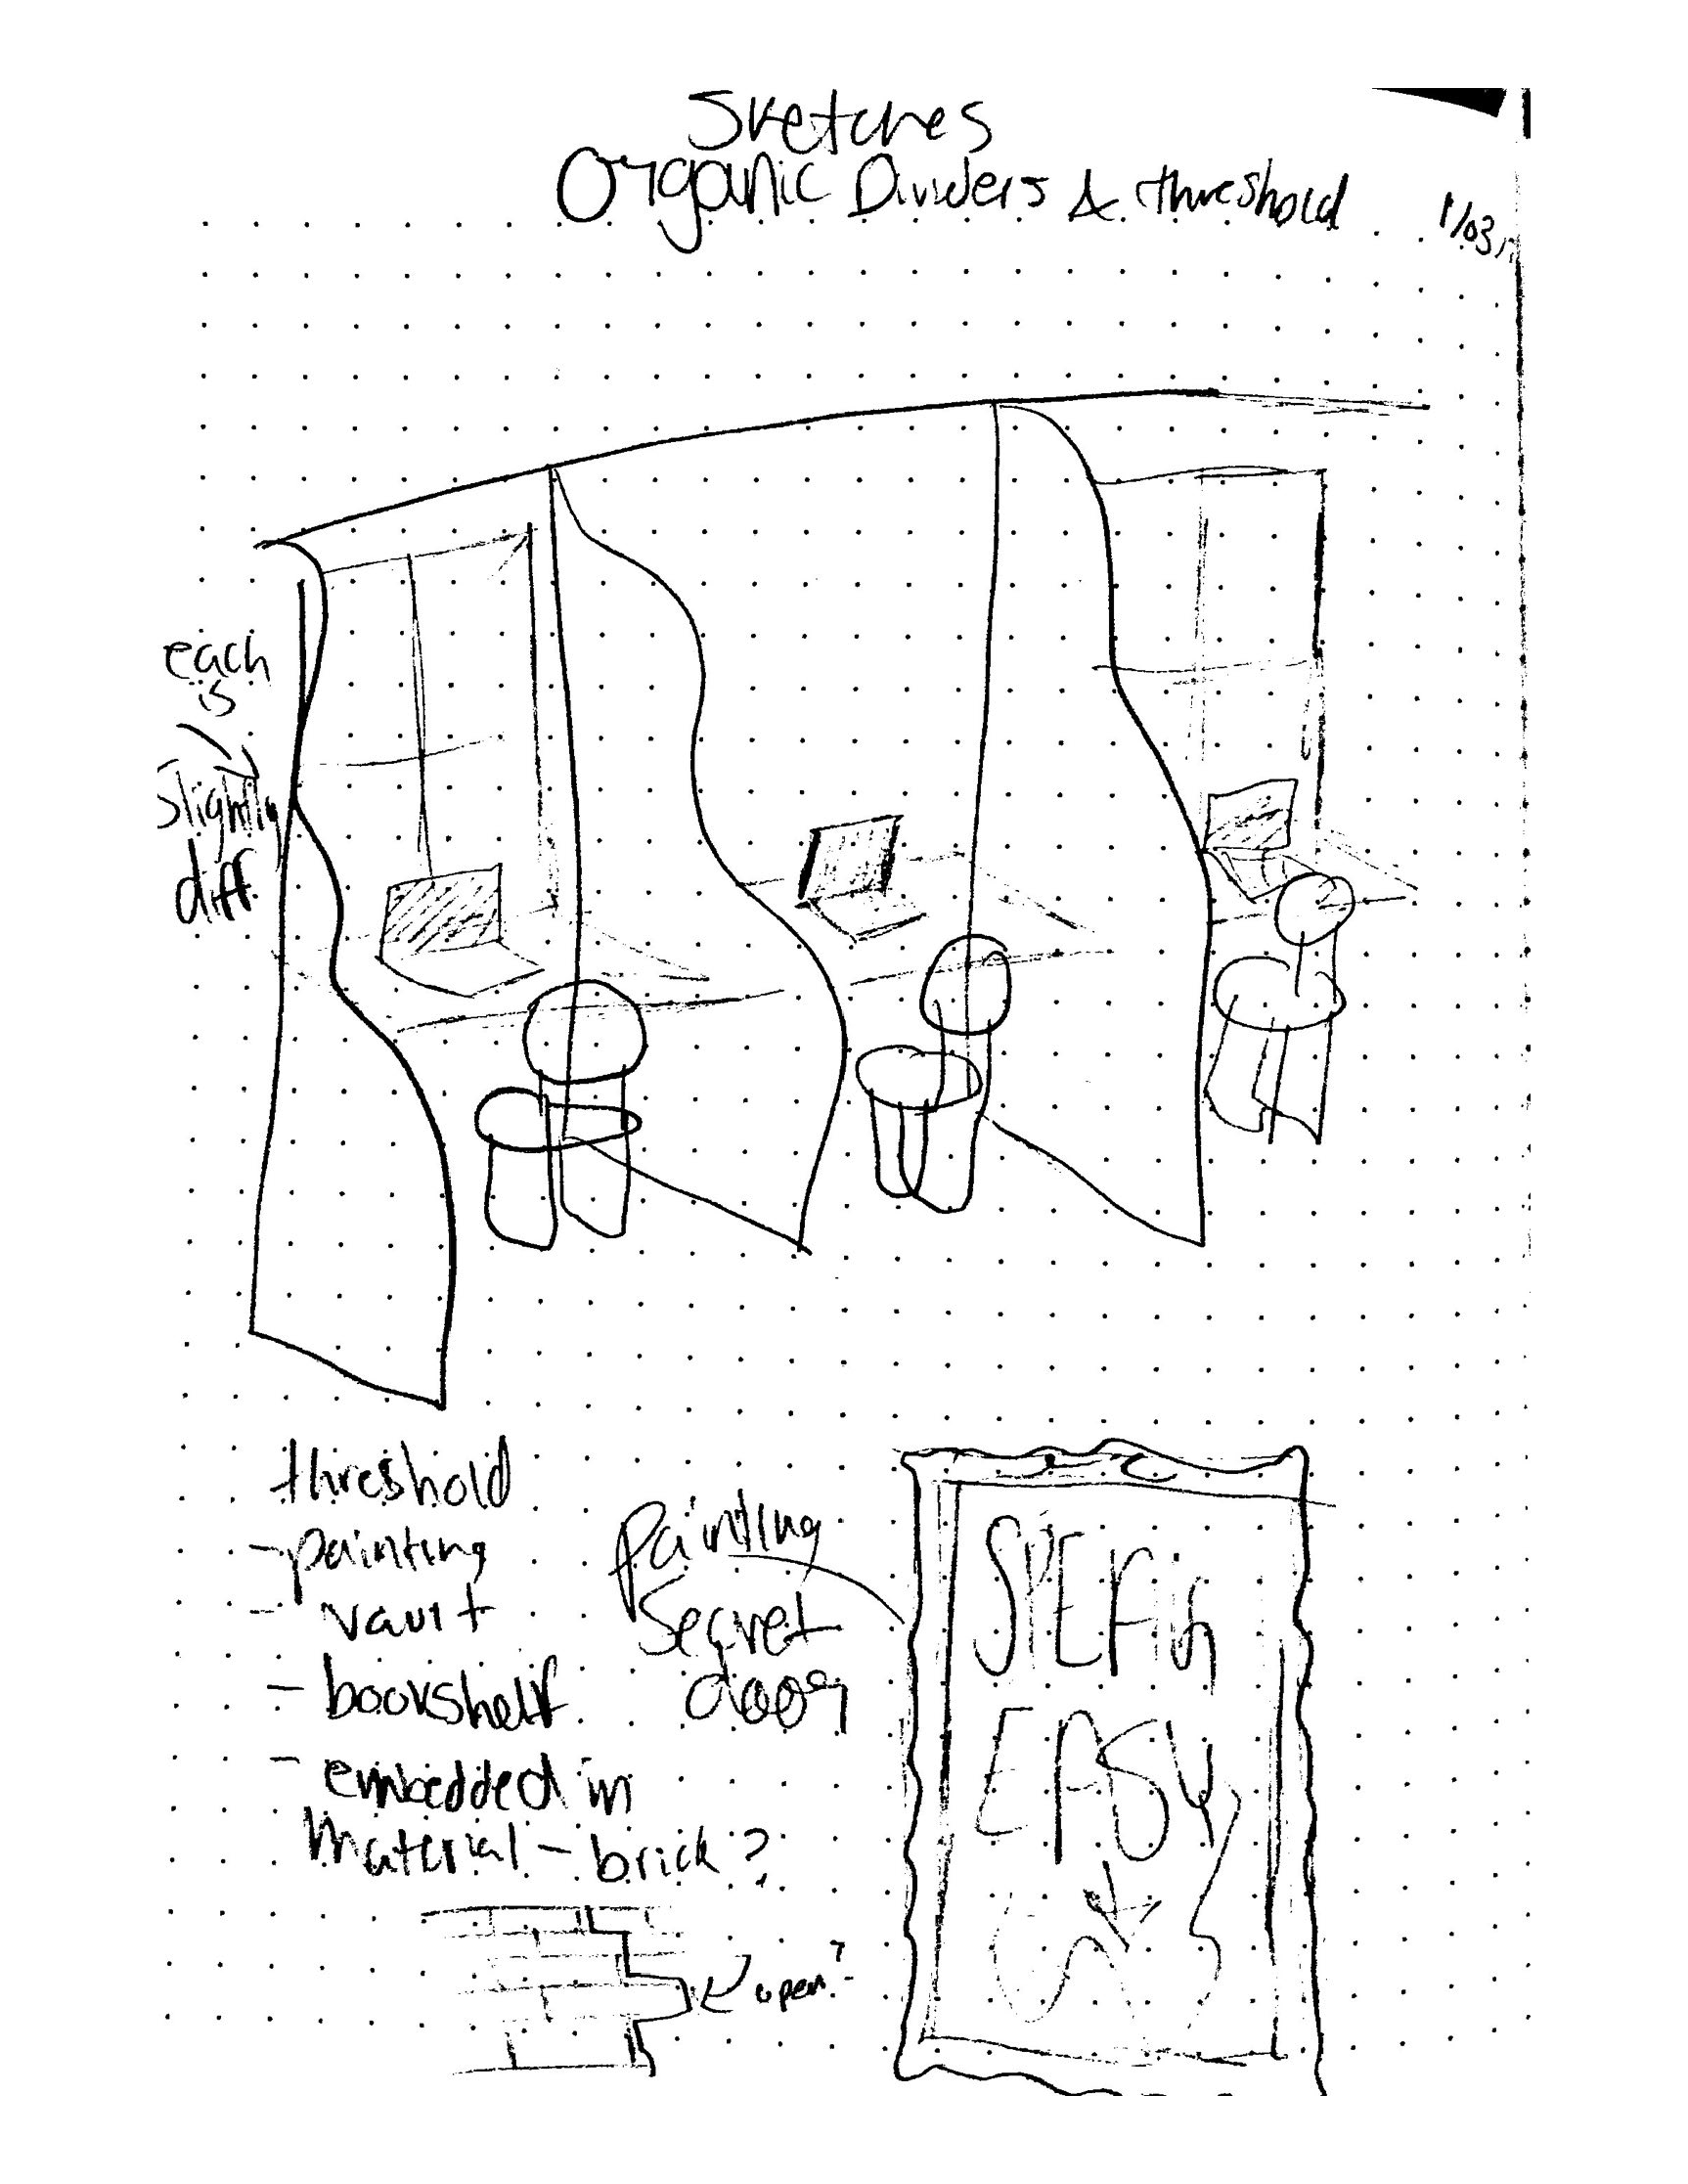 Sketches
Organic Dividers & threshold
1/03/
each
is
slightly
diff.
threshold
- painting
- vault
- bookshelf
- embedded in
material - brick?
open?
painting
Secret
door
SPEAK
EASY